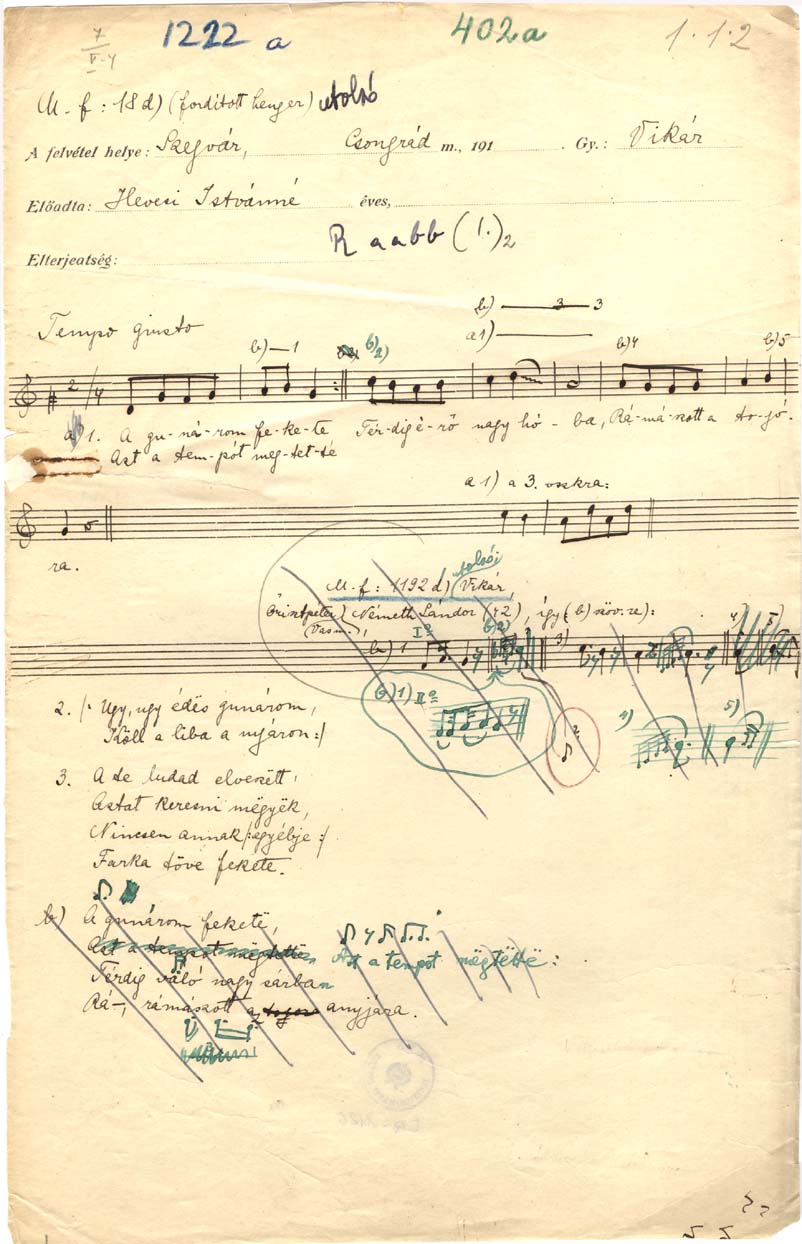 7
V-4
1222 a 402a 1.1.2
M.-f: 18 d) (fordított henger) utolsó
A felvétel helye: Szegvár, Csongrád m., 191 . Gy.: Vikár
Előadta: Hevesi Istvánné éves,
R aabb (1.)2
Elterjeatség:
b) 3 3
Tempo giusto a1)
b) 1 b)2) b)4 b)5
2/4
a) 1. A gu-ná-rom fe-ke-te Tér-dig é-rő nagy hó - ba, Rá-má-szott a to-jó-
Azt a tem-pót meg-tet-te
a 1) a 3. vszkra:
ra.
utolsói
M.-f: 1192 d) Vikár,
Őriszentpéter, Németh Sándor (42), így (b) szöv.re):
(Vasm.),
b) 1 Iº b)2) 3) 4) 5)
b) 1) IIº 4) 5)
2
2. /: Ugy, ugy édes gunárom,
Köll a liba a nyáron :/
3. A te ludad elveszëtt,
Asztat keresni mëgyëk,
Nincsen annak /: egyébje :/
Farka töve fekete.
b) A gunárom feketë,
Azt a tempot mëgtëttë Azt a tempot mëgtëttë:
Térdig váló nagy sárban
Rá-, rámászott az anyjára.